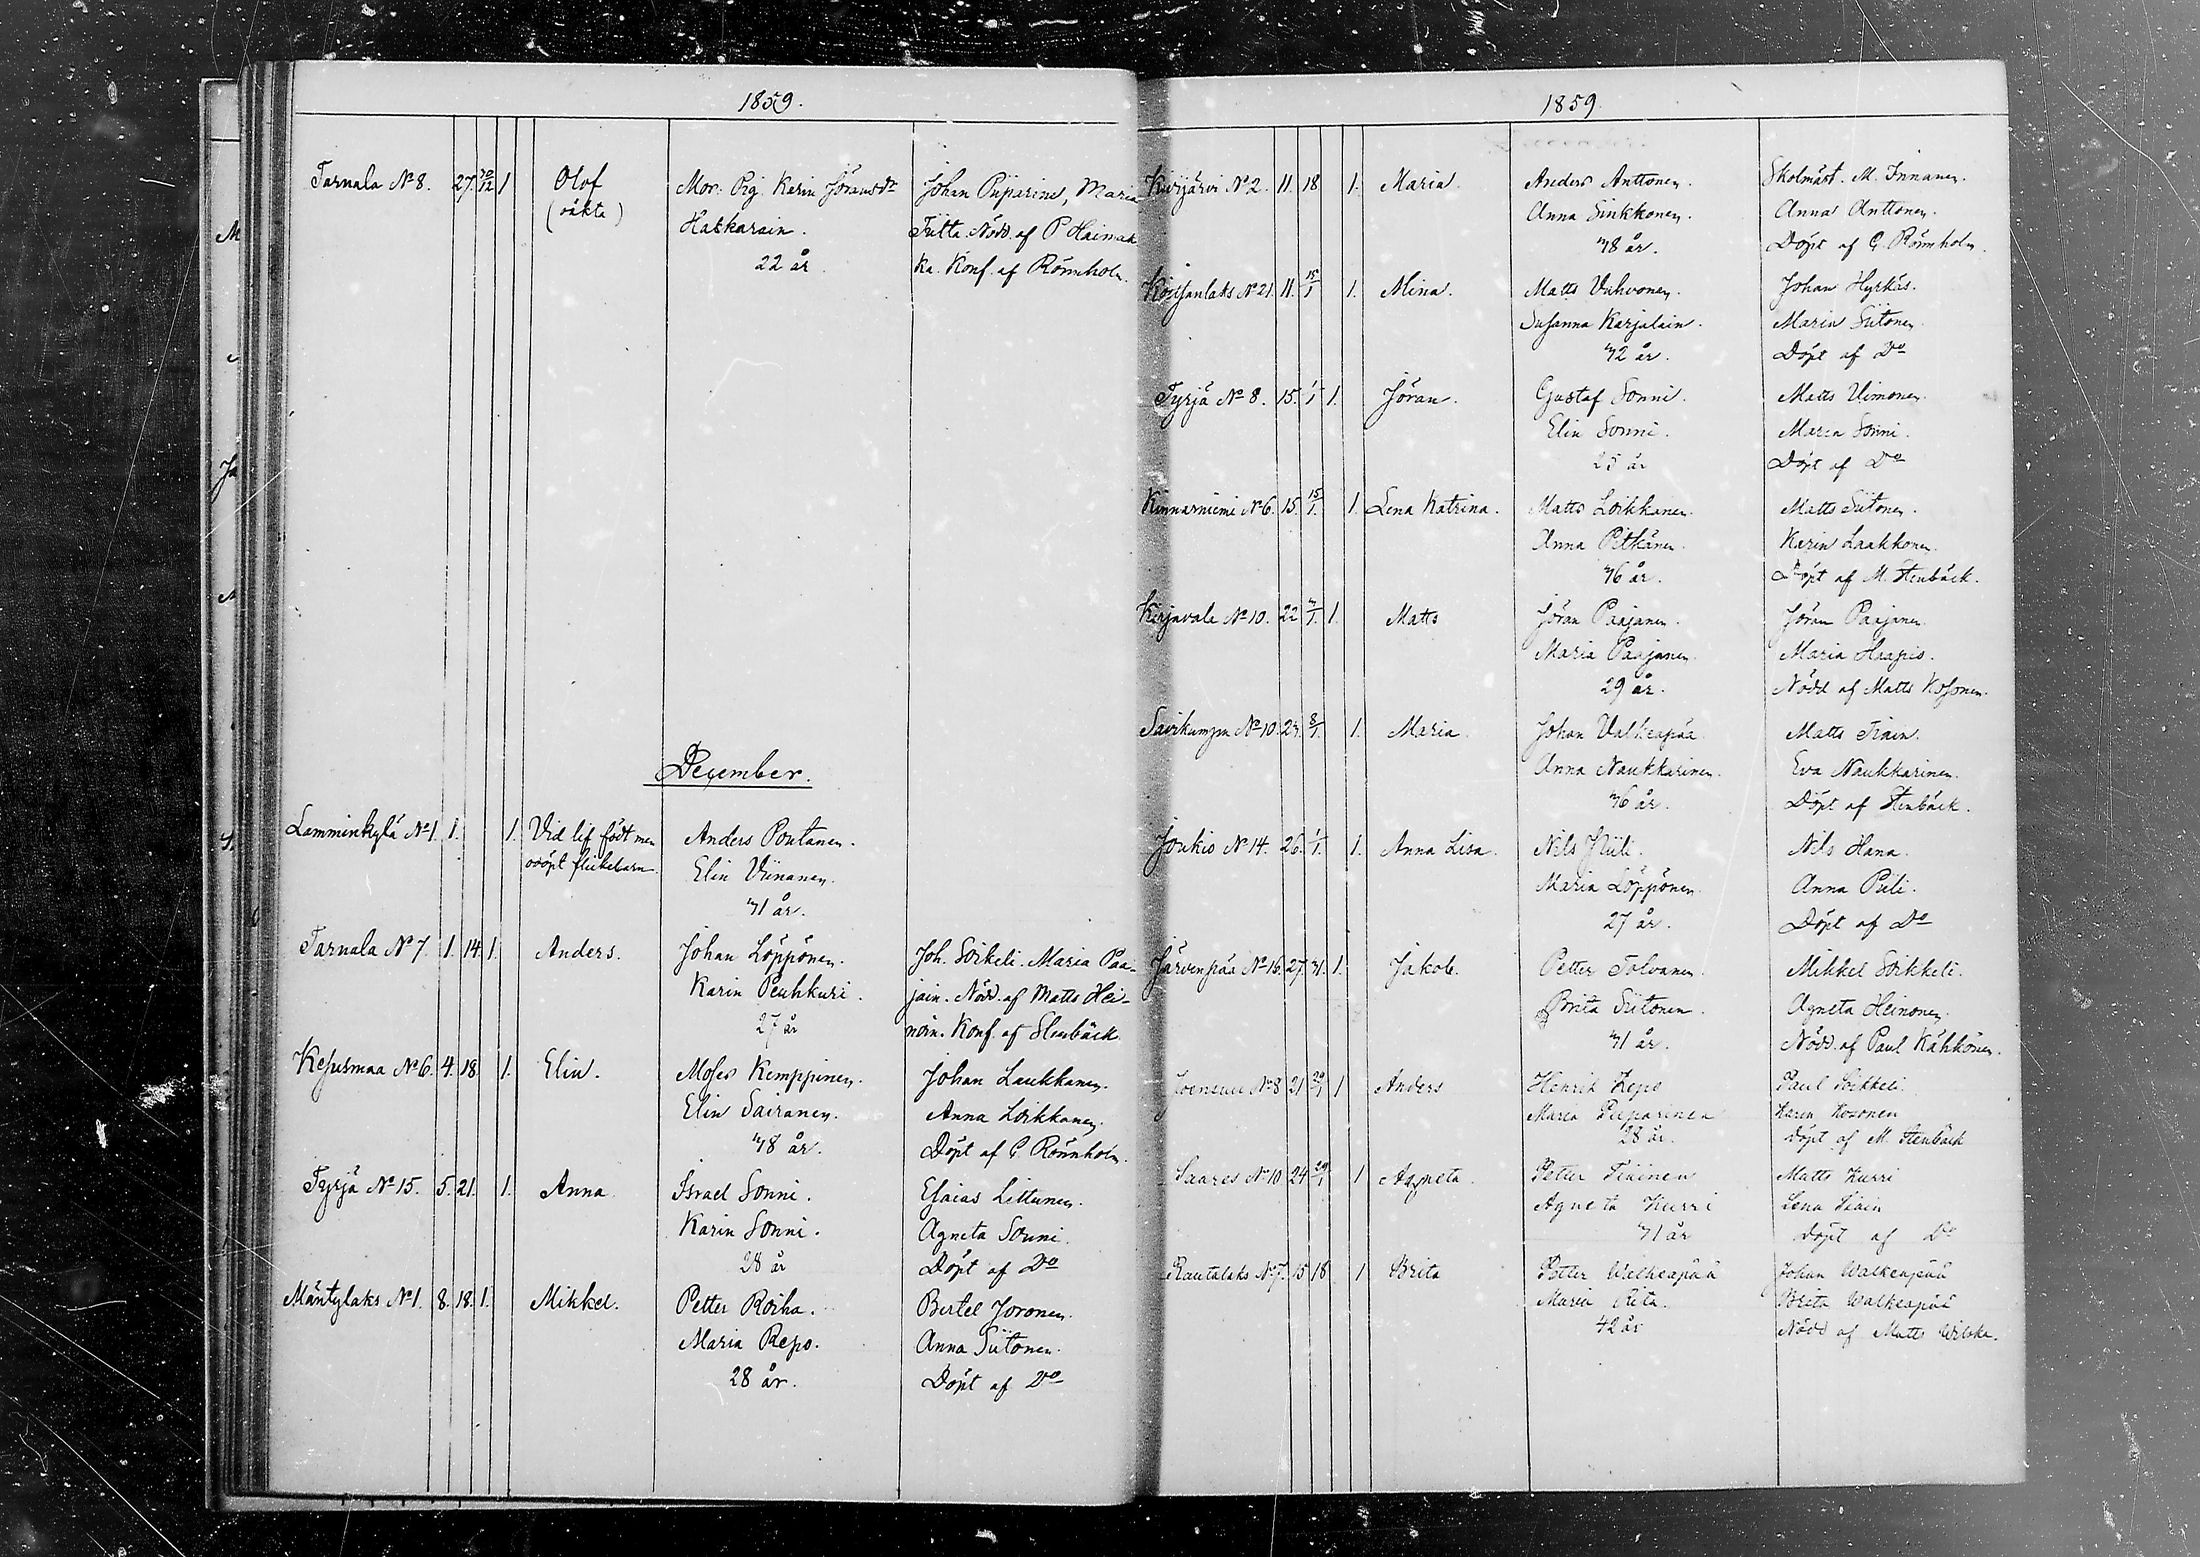 1859.
Tarnala No 8. 27. 30/12 1 Olof Mor: Pig. Karin Jöransdr Johan Piiparine, Maria
(oäkta) Hatkarain. Tiitta. Nödd. af P Hainak
22 år. ka. Konf. af Rönnholm.
December.
Lamminkylä No 1. 1. 1. Vid lif född men Anders Pontanen.
odöpt flickebarn. Elin Viinanen.
41 år.
Tarnala No 7. 1. 14. 1. Anders. Johan Löppönen. Joh. Soikeli. Maria Paa-
Karin Peuhkuri. jain. Nödd. af Matts Hei-
27 år noin. Konf. af Stenbäck
Kesusmaa No 6. 4. 18. 1. Elin. Moses Kemppinen. Johan Laukkanen.
Elin Sairanen. Anna Loikkanen.
48 år. Döpt af G Rönnholm.
Tyrjä No 15. 5. 21. 1. Anna Israel Sonni. Esaias Littunen.
Karin Sonni. Agneta Sonni.
28 år Döpt af Do
Mäntylaks No 1. 8. 18. 1. Mikkel. Petter Roiha. Bertel Joronen.
Maria Repo. Anna Siitonen.
28 år. Döpt af Do
1859.
No 2. 11. 18 1. Maria. Anders Anttonen. Skolmäst. M. Innanen.
Anna Sinkkonen. Anna Anttonen.
48 år. Döpt af G. Rönnholm.
No 21. 11. 15/1 1. Mina. Matts Vahvonen. Johan Hyrkäs.
Susanna Karjalain. Maria Siitonen
42 år. Döpt af Do
Tyrjä No 8. 15. 1/1 1. Jöran. Gustaf Sonni. Matts Uimonen.
Elin Sonni. Maria Sonni.
25 år Döpt af Do
Kinnarniemi No 6. 15. 15/1. 1. Lena Katrina. Matts Loikkanen. Matts Siitonen.
Anna Pitkänen. Karin Laakkonen.
46 år. Döpt af M. Stenbäck.
Kirjavala No 10. 22 4/1. 1. Matts Jöran Paajanen. Jöran Paajanen
Maria Paajanen. Maria Haapis.
29 år. Nödd af Matts Kosonen.
Savikumpu No 10. 24. 8/1. 1. Maria. Johan Valkeapää Matts Tiain.
Anna Naukkarinen. Eva Naukkarinen.
46 år. Döpt af Stenbäck.
Joukio No 14. 26. 1/1. 1. Anna Lisa. Nils Hana.
Maria Löppönen. Anna Piili.
27 år. Döpt af Do
Järvenpää No 16. 27. 1. Jakob. Petter Tolvanen. Mikkel Soikkeli.
Brita Siitonen. Agneta Heinonen.
41 år. Nödd. af Paul Kähkönen.
Joensuu No 8 21 29/1 1 Anders Henrik Repo Paul Soikkeli.
Maria Piiparinen Karin Kosonen
28 år. döpt af M. Stenbäck
Saares No 10 24 29/1 1 Agneta. Petter Tiainen Matts Kurri
Agneta Kurri Lena Tiain
41 år döpt af Do
Rautalaks No 7. 15 18 1 Brita Petter Walkeapää Johan Walkeapää
Maria Rita. Brita Walkeapää
42 år Nödd af Matts Wilska.